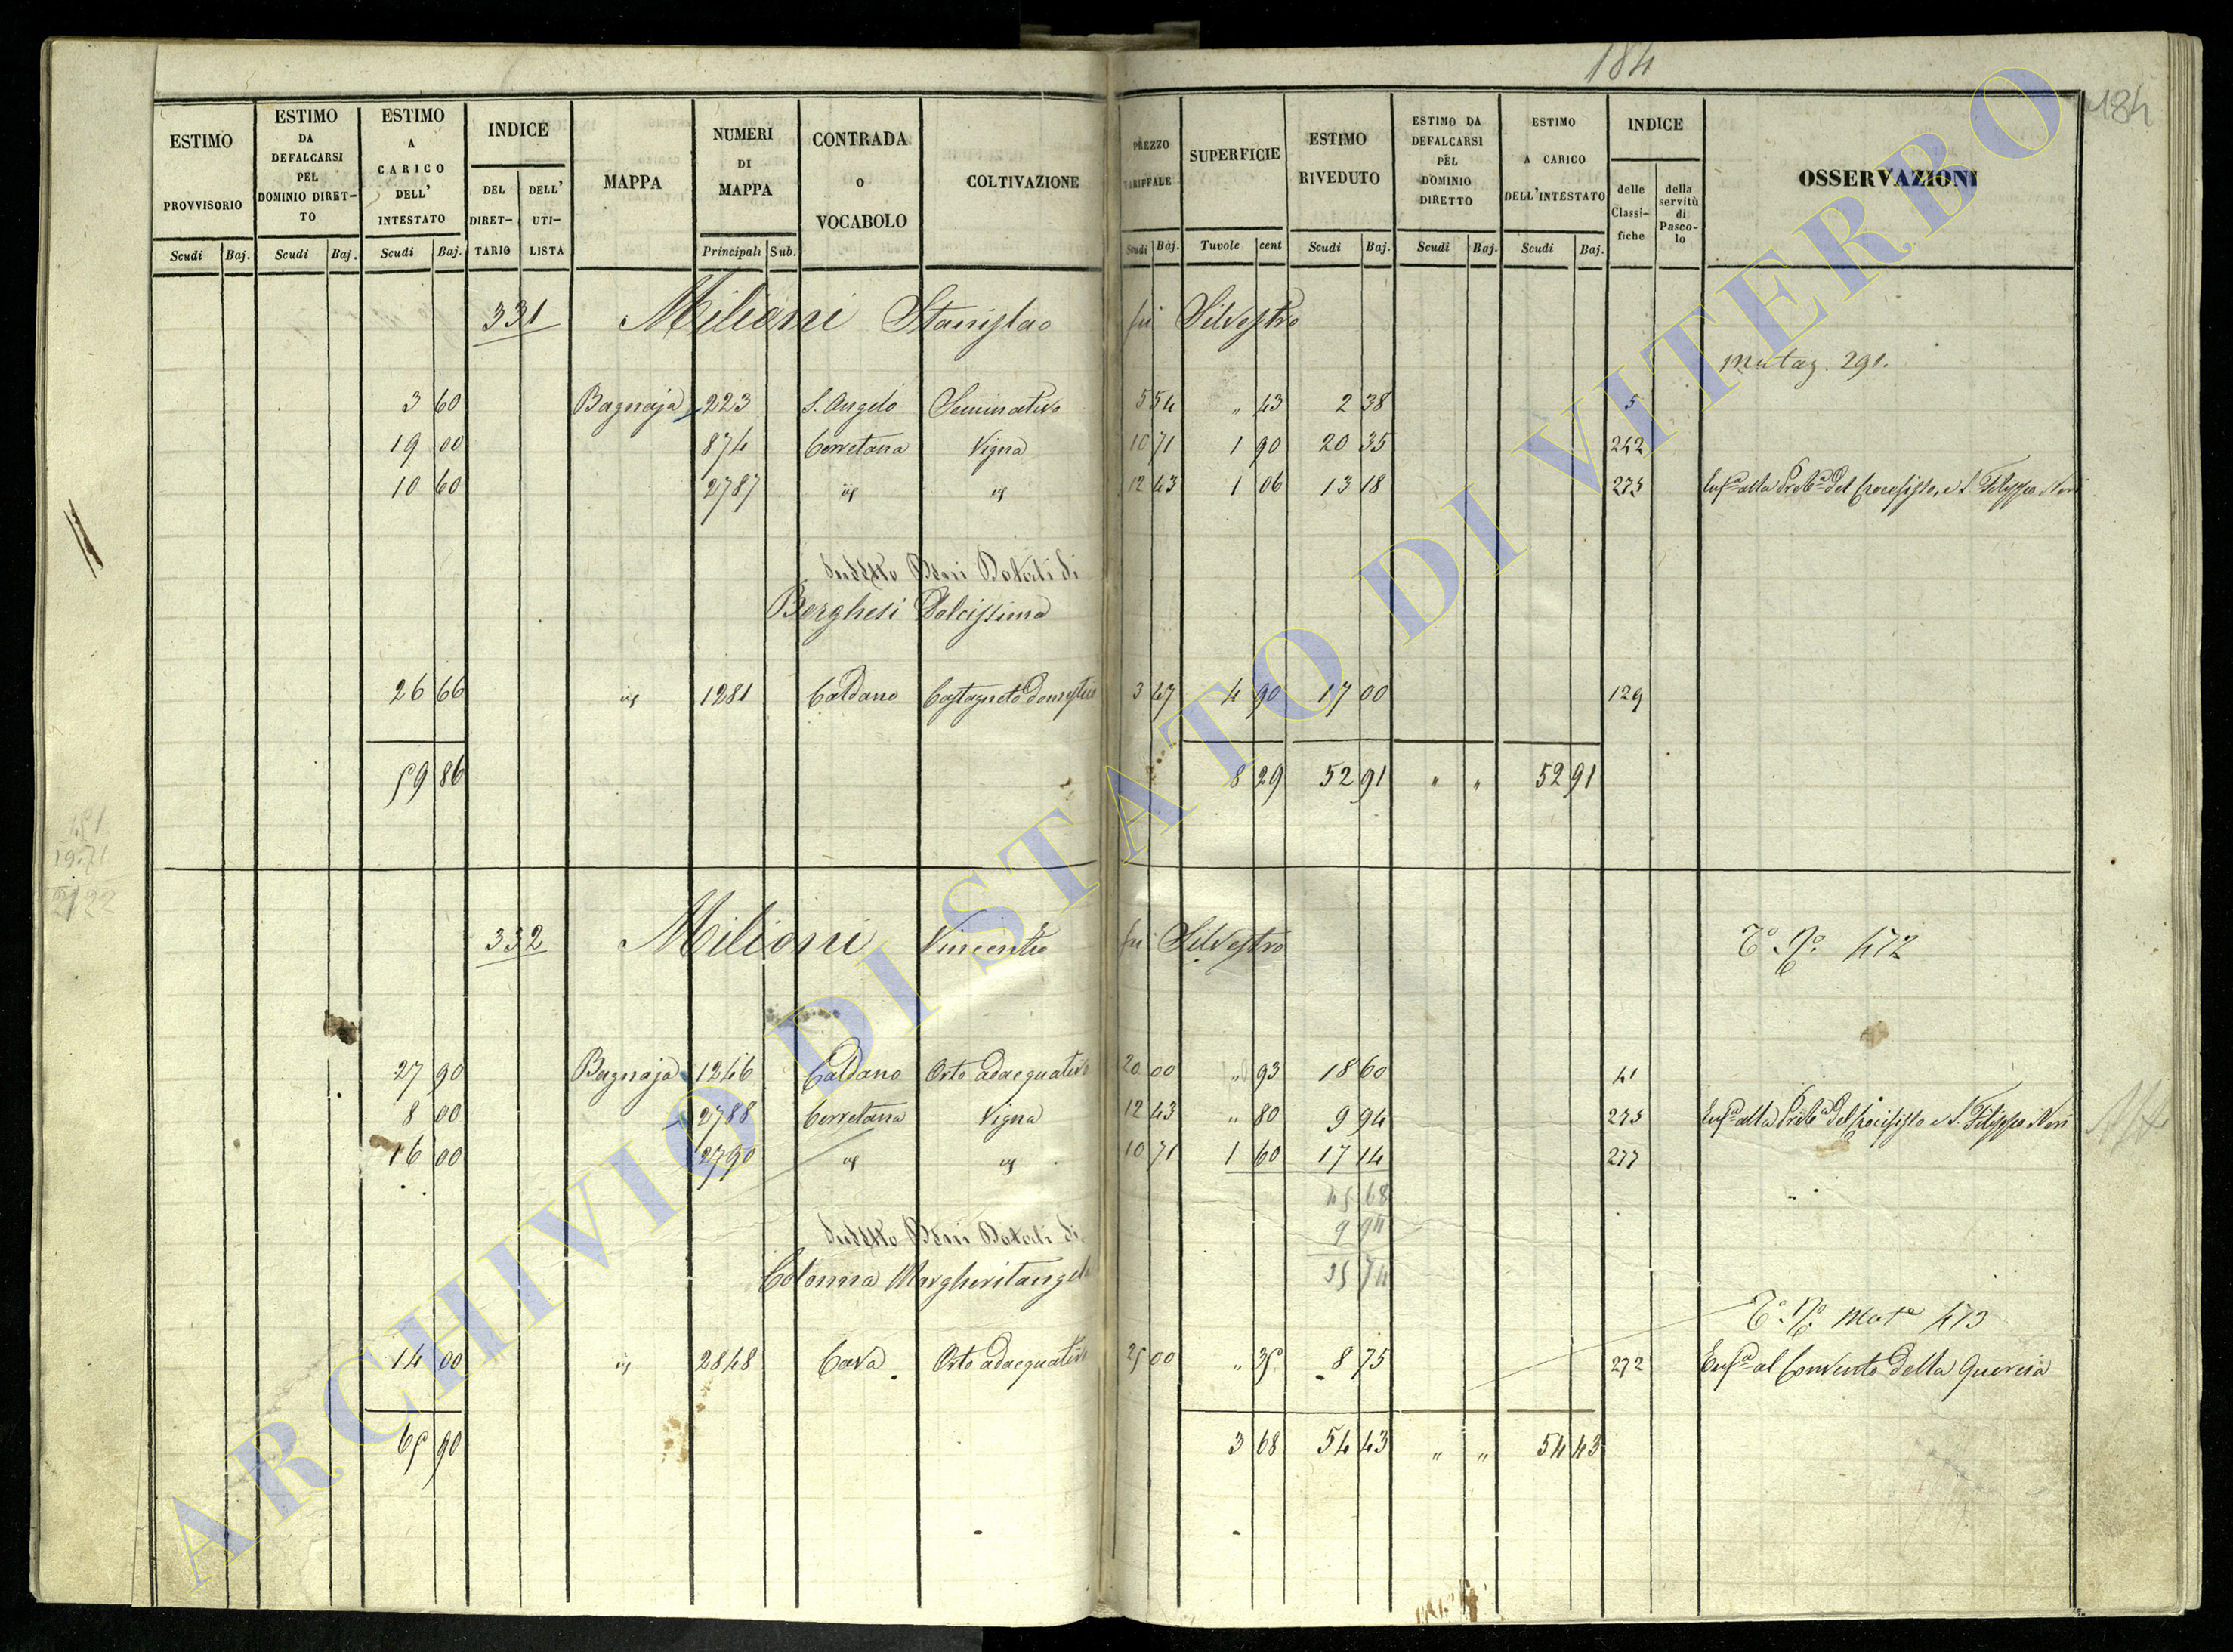 184
184
ESTIMO PROVVISORIO Scudi Baj. ESTIMO DA DEFALCARSI PEL DOMINIO DIRET-TO Scudi Baj. ESTIMO A CARICO DELL' INTESTATO Scudi Baj. INDICE DEL DIRET-TARIO DELL' UTI-LISTA MAPPA NUMERI DI MAPPA Principali Sub. CONTRADA O VOCABOLO COLTIVAZIONE PREZZO TARIFFALE Scudi Baj. SUPERFICIE Tavole cent ESTIMO RIVEDUTO Scudi Baj. ESTIMO DA DEFALCARSI PEL DOMINIO DIRETTO Scudi Baj. ESTIMO A CARICO DELL'INTESTATO Scudi Baj. INDICE delle Classi-fiche della servitù di Pasco-lo OSSERVAZIONI
331 Milioni Stanislao fu Silvestro
mutaz. 291.
3 60 Bagnaja 223 S. Angelo Seminativo 5 54 " 43 2 38 5
19 00 874 Cerretana Vigna 10 71 1 90 20 35 242
10 60 2787 id id 12 43 1 06 13 18 275 Enf.a alla Preb.a del Crocefisso, e S. Filippo Neri
Suddetto Beni Dotali di
Borghesi Dolcissima
26 66 id 1281 Caldano Castagneto domestico 3 47 4 90 17 00 129
59 86 8 29 52 91 " " 52 91
1.51
19.71
21 22
332 Milioni Vincenzo fu Silvestro T.o N.o 472
27 90 Bagnaja 1246 Caldano Orto adaequativo 20 00 " 93 18 60 41
8 00 2788 Cerretana Vigna 12 43 " 80 9 94 275 Enf.a alla Preb.a del Crocifisso e S. Filippo Neri
16 00 2790 id id 10 71 1 60 17 14 277
45 68
9 94
35 74
Suddetto Beni Dotali di
Colonna Margheritangela
T.o N.o Mut.e 473
14 00 id 2848 Cava Orto adaequativo 25 00 " 35 8 75 272 Enf.a al Convento della Quercia
65 90 3 68 54 43 " " 54 43
ARCHIVIO DI STATO DI VITERBO